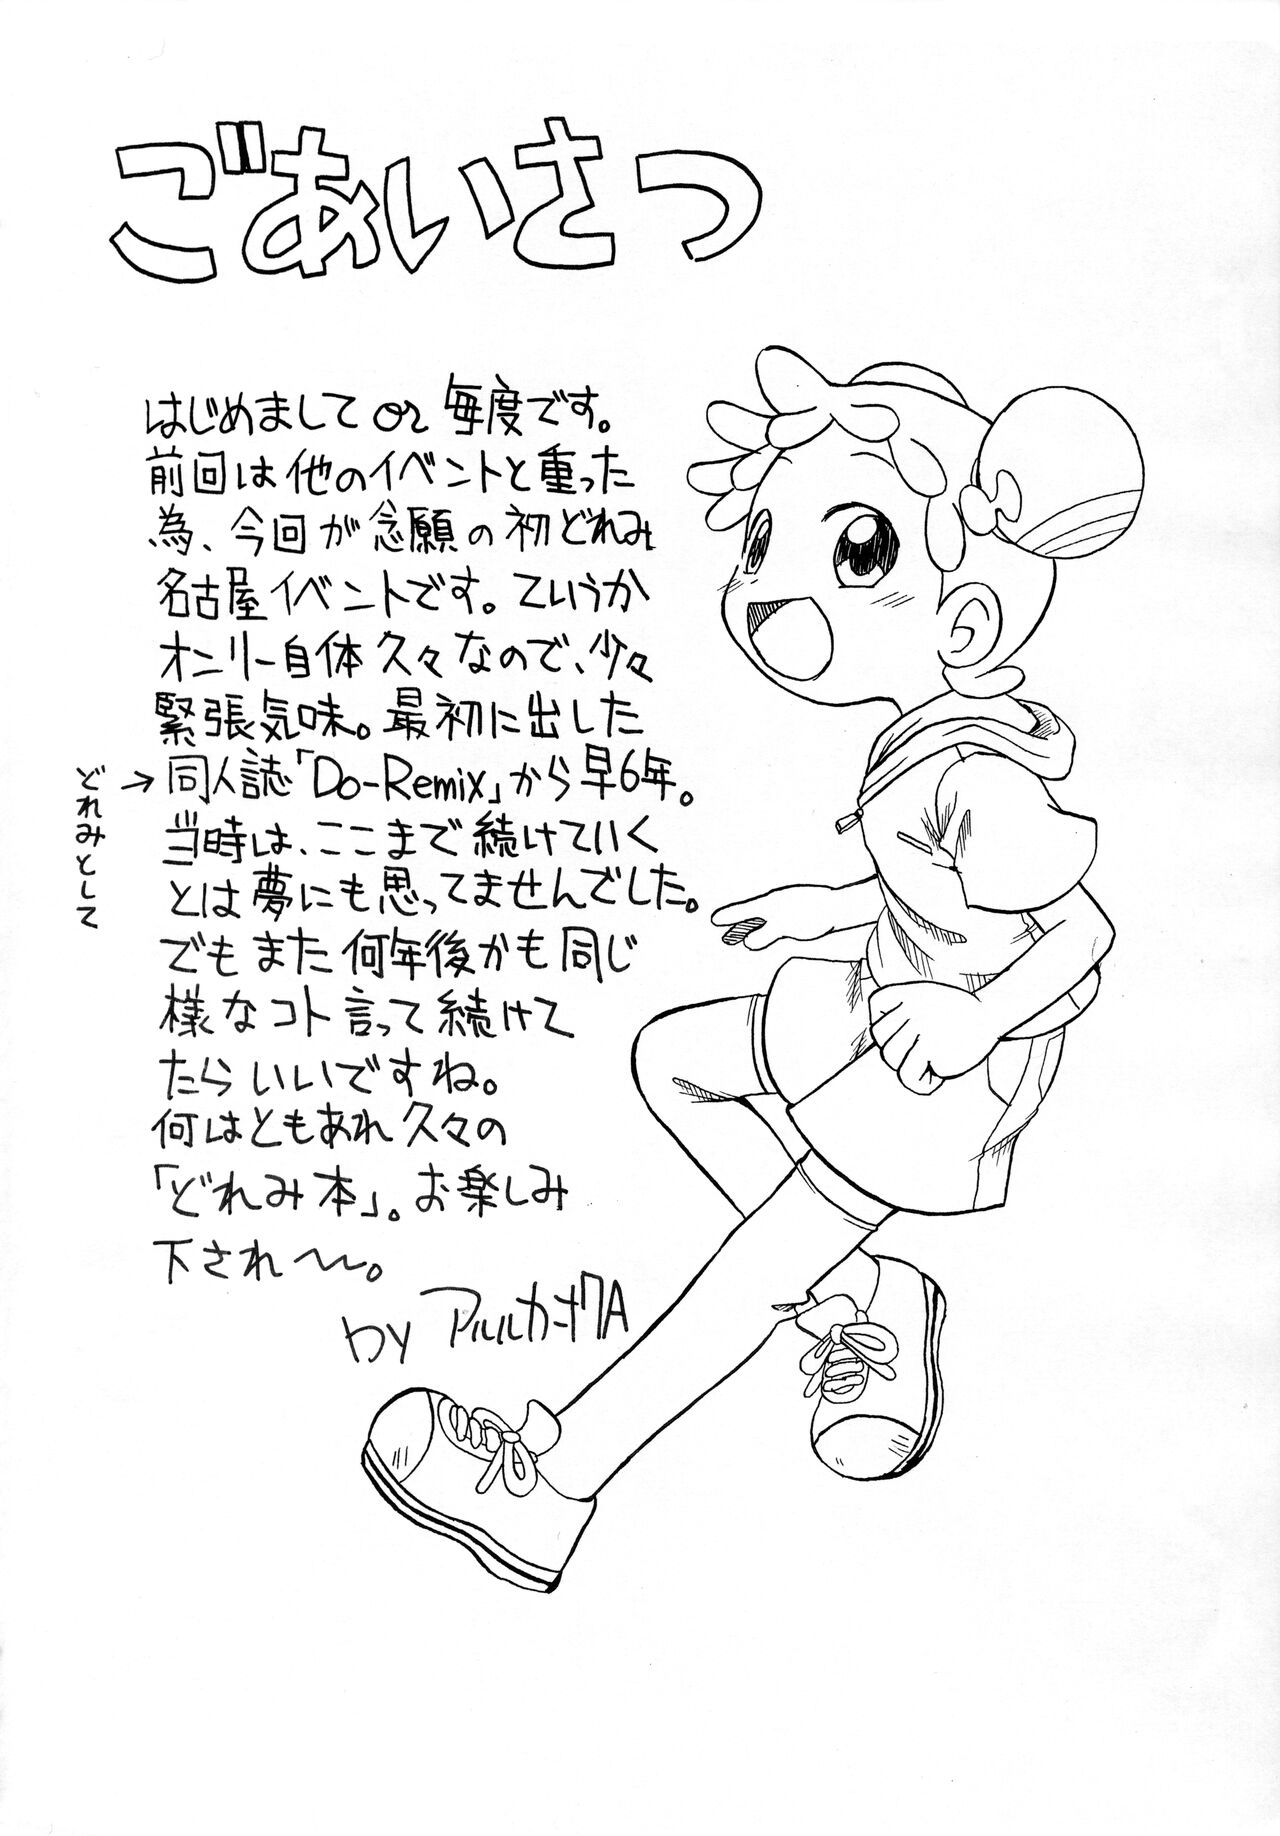 ごあいさつ
はじめまして or 毎度です。
前回は他のイベントと重った
為、今回が念願の初どれみ
名古屋イベントです。ていうか
オンリー自体久々なので、少々
緊張気味。最初に出した
どれみとして→
同人誌「Do-Remix」から早6年。
当時は、ここまで続けていく
とは夢にも思ってませんでした。
でもまた何年後かも同じ
様なコト言って続けて
たらいいですね。
何はともあれ久々の
「どれみ本」。お楽しみ
下され〜。
by